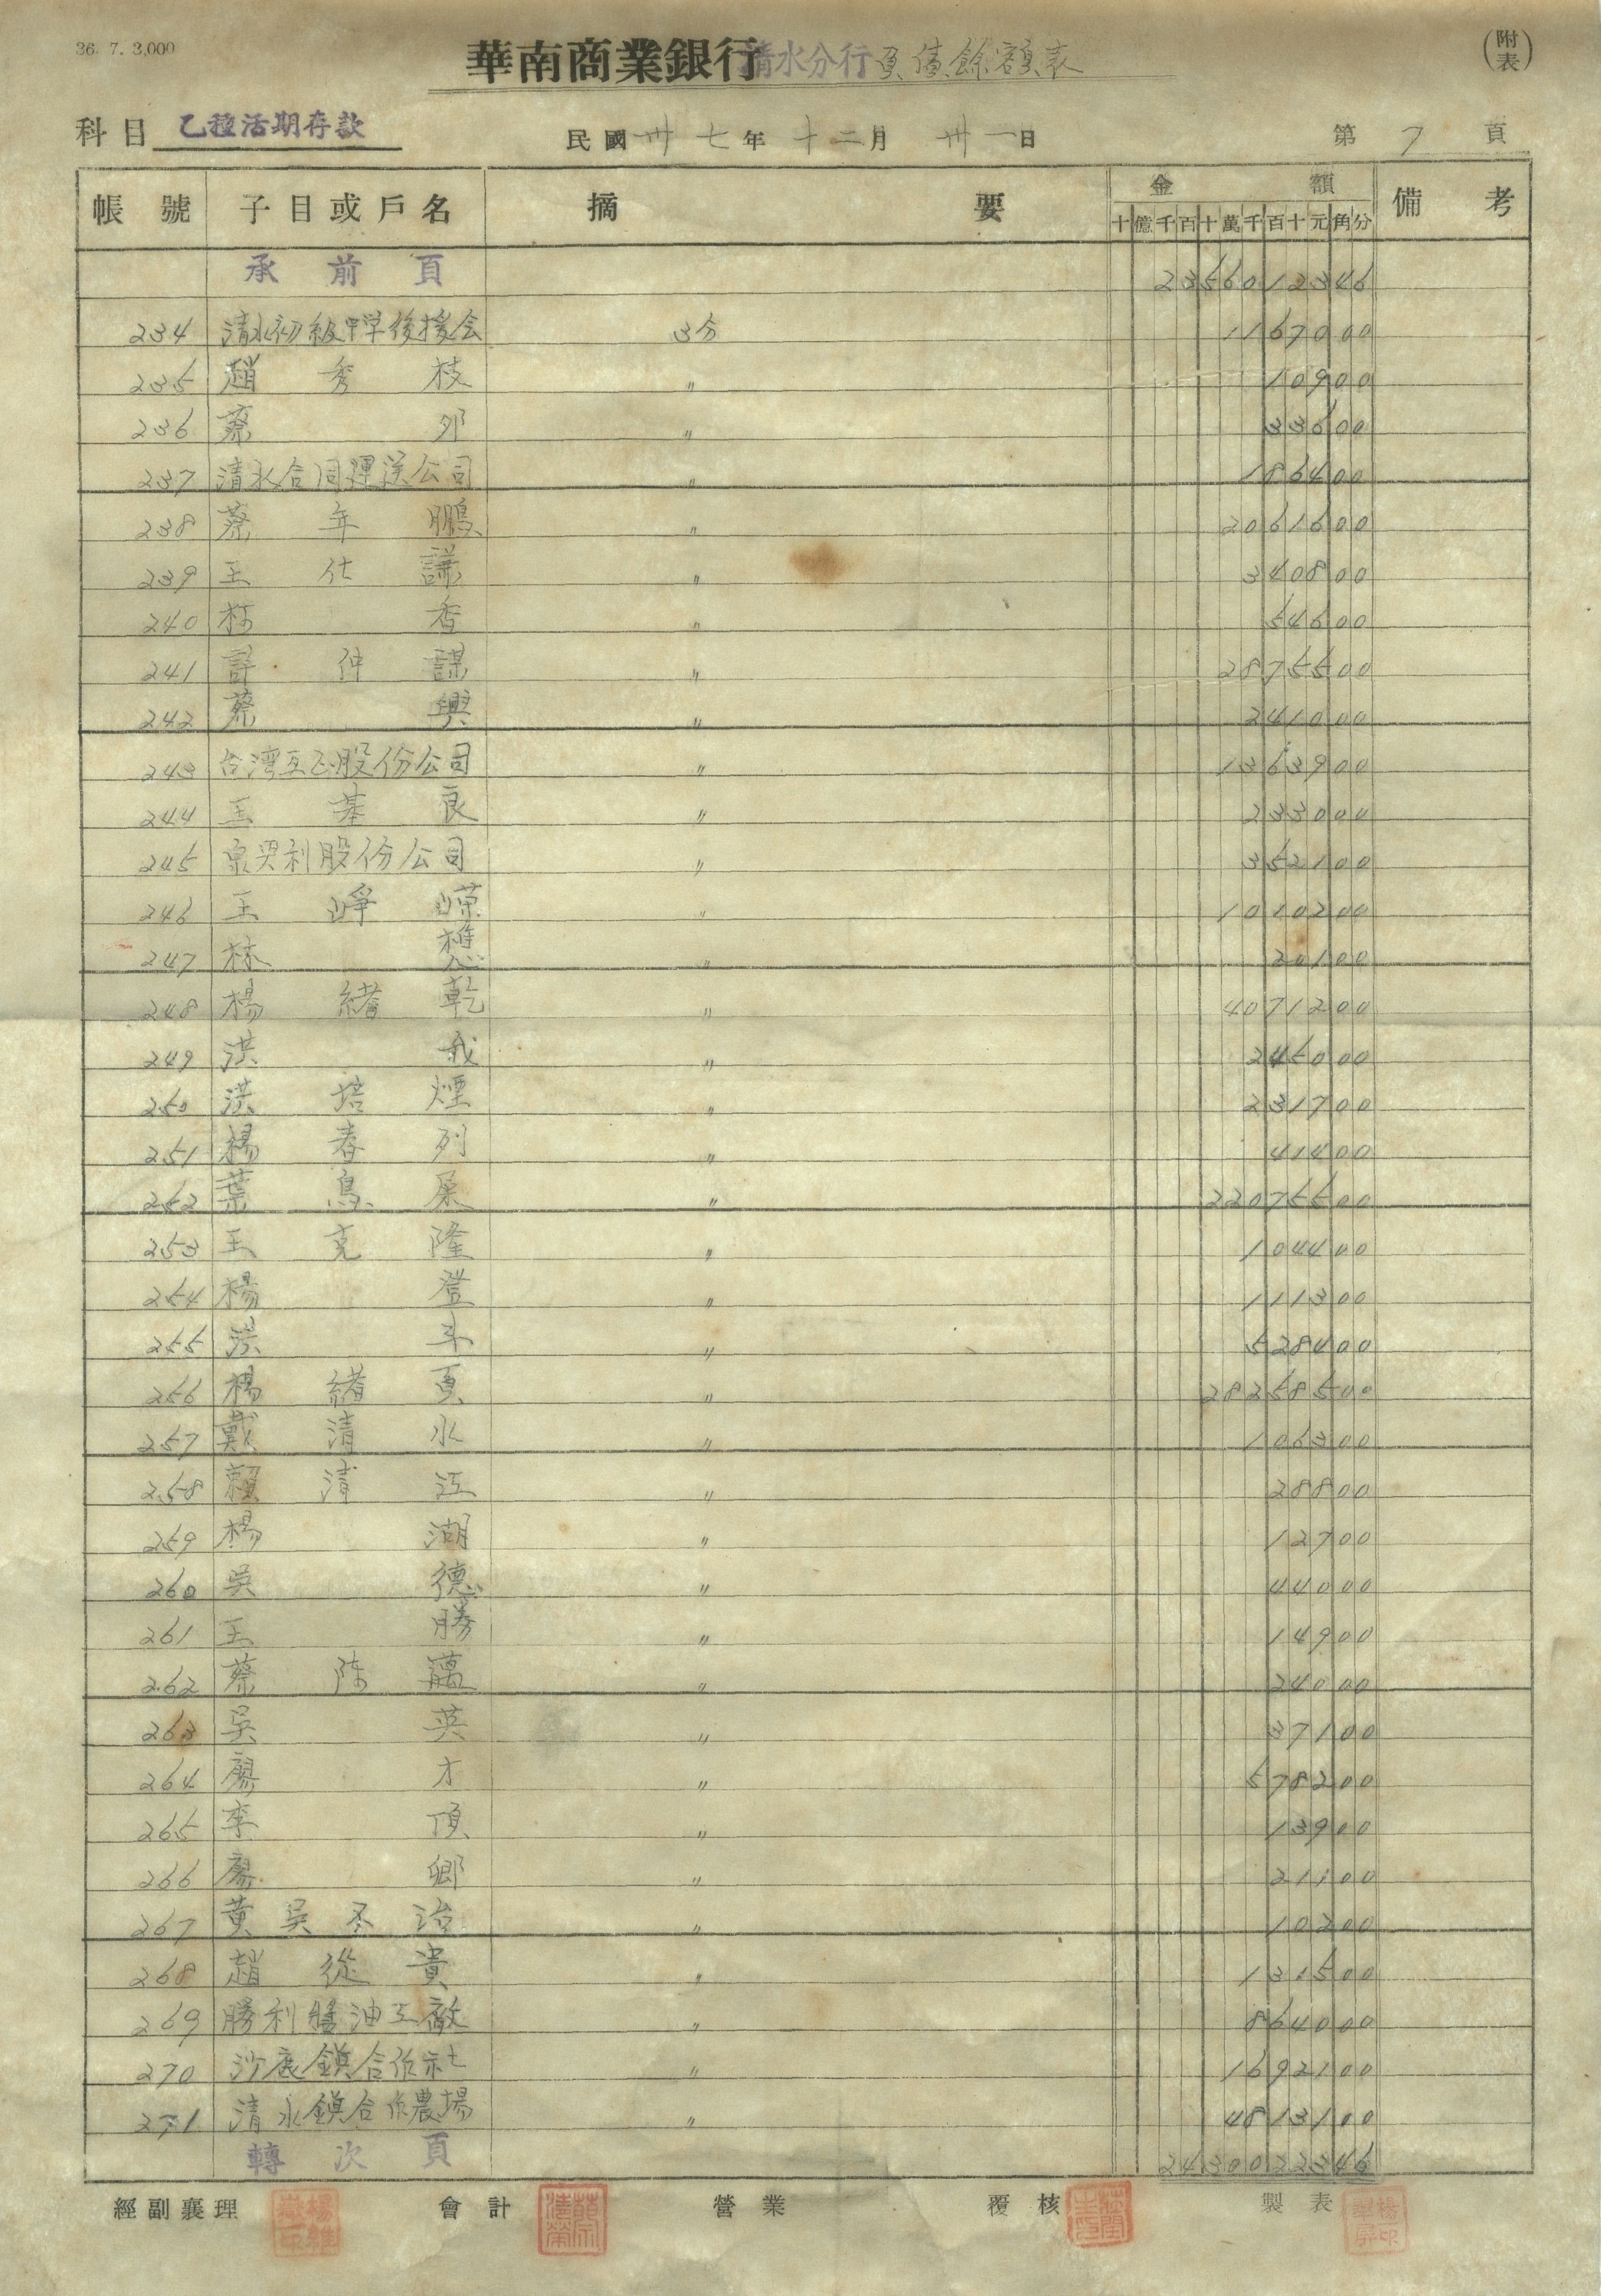 36. 7. 3,000
華南商業銀行清水分行負債餘額表
(附表)
科目 乙種活期存款
民國卅七年十二月卅一日
第 7 頁
帳號 子目或戶名 摘要 金額 備考
十億千百十萬千百十元角分
承前頁 23560123 46
234 清水初級中学後援会 3分 11670 00
235 趙秀枝 〃 109 00
236 蔡 〃 336 00
237 清水合同運送公司 〃 1864 00
238 蔡年鵬 〃 20616 00
239 王仕謙 〃 3408 00
240 林香 〃 546 00
241 許仲謀 〃 28755 00
242 蔡興 〃 2410 00
243 台湾互正股份公司 〃 13639 00
244 王基良 〃 2330 00
245 股份公司 〃 3521 00
246 王崢嶸 〃 10102 00
247 林 〃 201 00
248 楊緒乾 〃 40712 00
249 洪我 〃 2450 00
250 洪培煙 〃 2317 00
251 楊春列 〃 414 00
252 葉鳥 〃 220755 00
253 王克隆 〃 1044 00
254 楊登 〃 1113 00
255 洪 〃 5284 00
256 楊緒 〃 282585 00
257 戴清水 〃 1063 00
258 賴清江 〃 288 00
259 楊湖 〃 127 00
260 吳德 〃 440 00
261 王勝 〃 149 00
262 蔡陈 〃 240 00
263 吳英 〃 371 00
264 廖才 〃 5782 00
265 李頂 〃 139 00
266 廖鄉 〃 211 00
267 黃吳 〃 102 00
268 趙從貴 〃 1315 00
269 勝利醬油工廠 〃 8640 00
270 沙鹿鎮合作社 〃 16921 00
271 清水鎮合作農場 〃 48131 00
轉次頁 24300223 46
經副襄理 會計 營業 覆核 製表